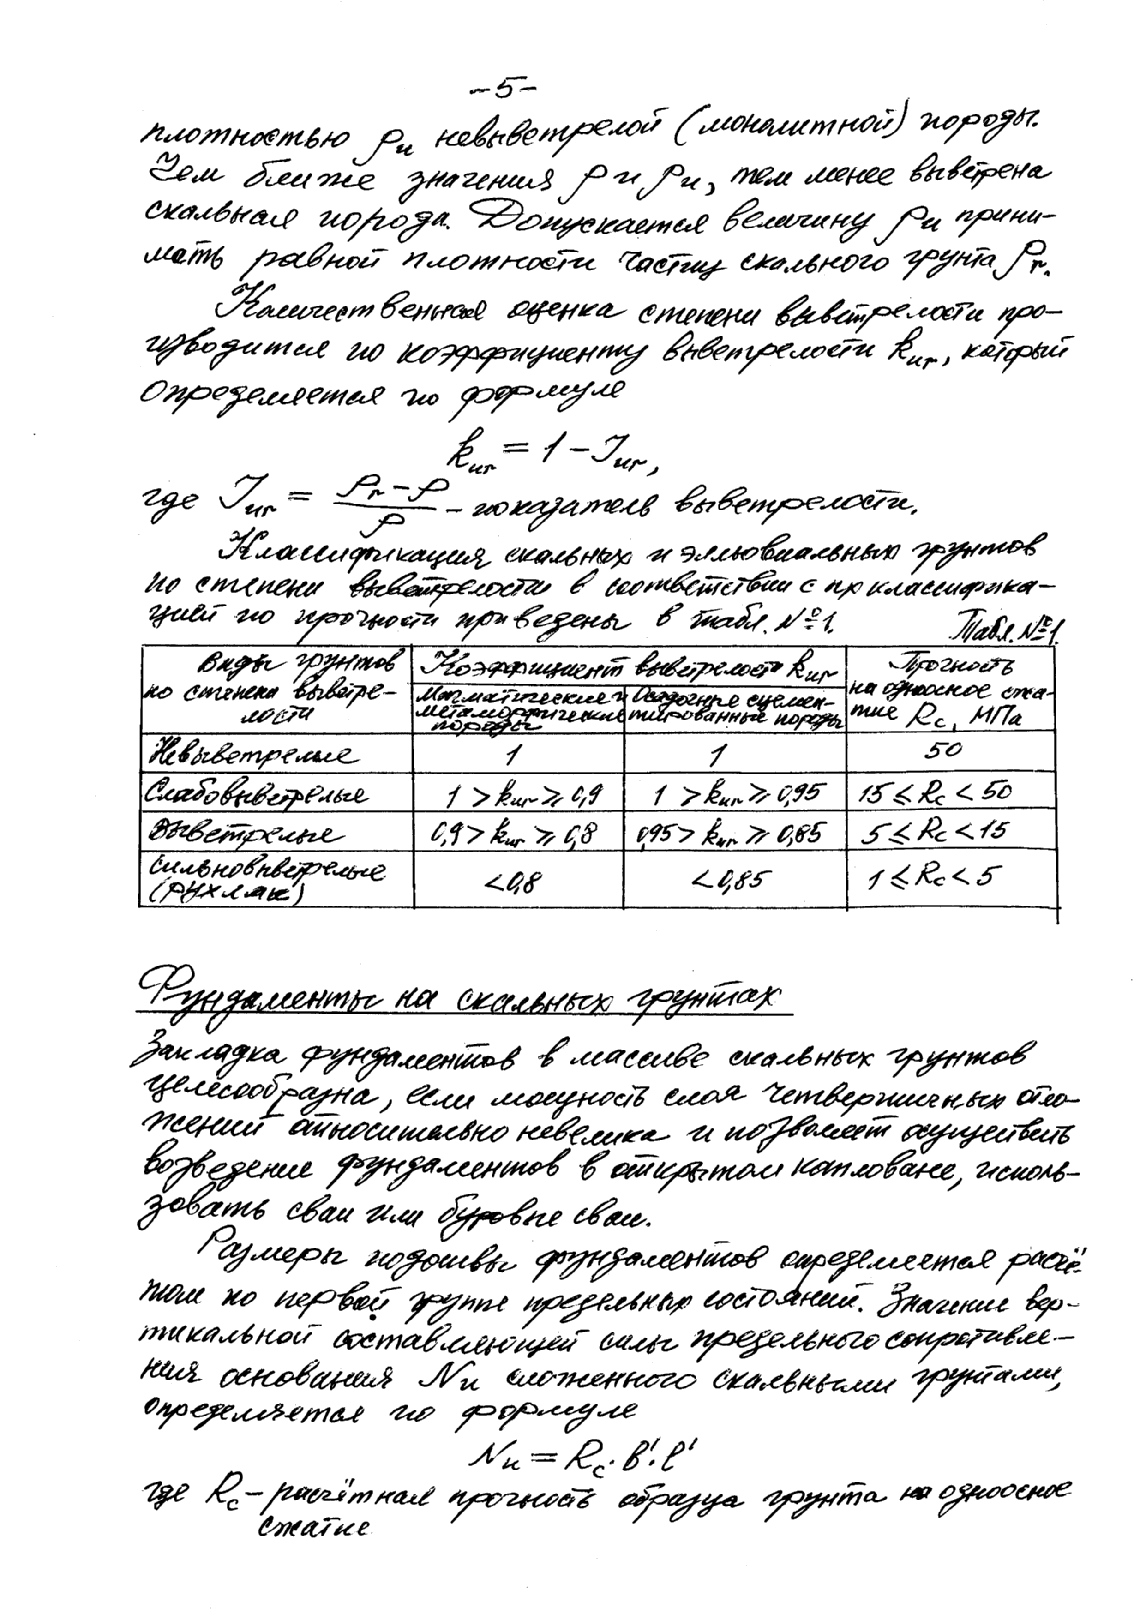 –5–
плотностью ρи невыветрелой (монолитной) породы.
Чем ближе значения ρ и ρи, тем менее выветрена
скальная порода. Допускается величину ρи прини-
мать равной плотности частиц скального грунта ρr.
Количественная оценка степени выветрелости про-
изводится по коэффициенту выветрелости kиr, который
определяется по формуле
kиr = 1 – Jиr,
где Jиr = (ρr – ρ)/ρ – показатель выветрелости.
Классификация скальных и элювиальных грунтов
по степени выветрелости в соответствии с пр классифика-
цией по прочности приведены в табл. №1.
Табл. №1.
Виды грунтов по степени выветре-лости | Коэффициент выветрелости kиr | Прочность на одноосное сжа-тие Rс, МПа
Магматические и метаморфические породы | Осадочные сцемен-тированные породы
Невыветрелые | 1 | 1 | 50
Слабовыветрелые | 1 > kиr ≥ 0,9 | 1 > kиr ≥ 0,95 | 15 ≤ Rс < 50
Выветрелые | 0,9 > kиr ≥ 0,8 | 0,95 > kиr ≥ 0,85 | 5 ≤ Rс < 15
Сильновыветрелые (рухляк) | <0,8 | <0,85 | 1 ≤ Rс < 5
Фундаменты на скальных грунтах
Закладка фундаментов в массиве скальных грунтов
целесообразна, если мощность слоя четвертичных отло-
жений относительно невелика и позволяет осуществить
возведение фундаментов в открытом котловане, исполь-
зовать сваи или буровые сваи.
Размеры подошвы фундаментов определяется расчё-
том по первой группе предельных состояний. Значение вер-
тикальной составляющей силы предельного сопротивле-
ния основания Nи сложенного скальными грунтами,
определяется по формуле
Nи = Rс · b' · l'
где Rс – расчётная прочность образца грунта на одноосное
сжатие